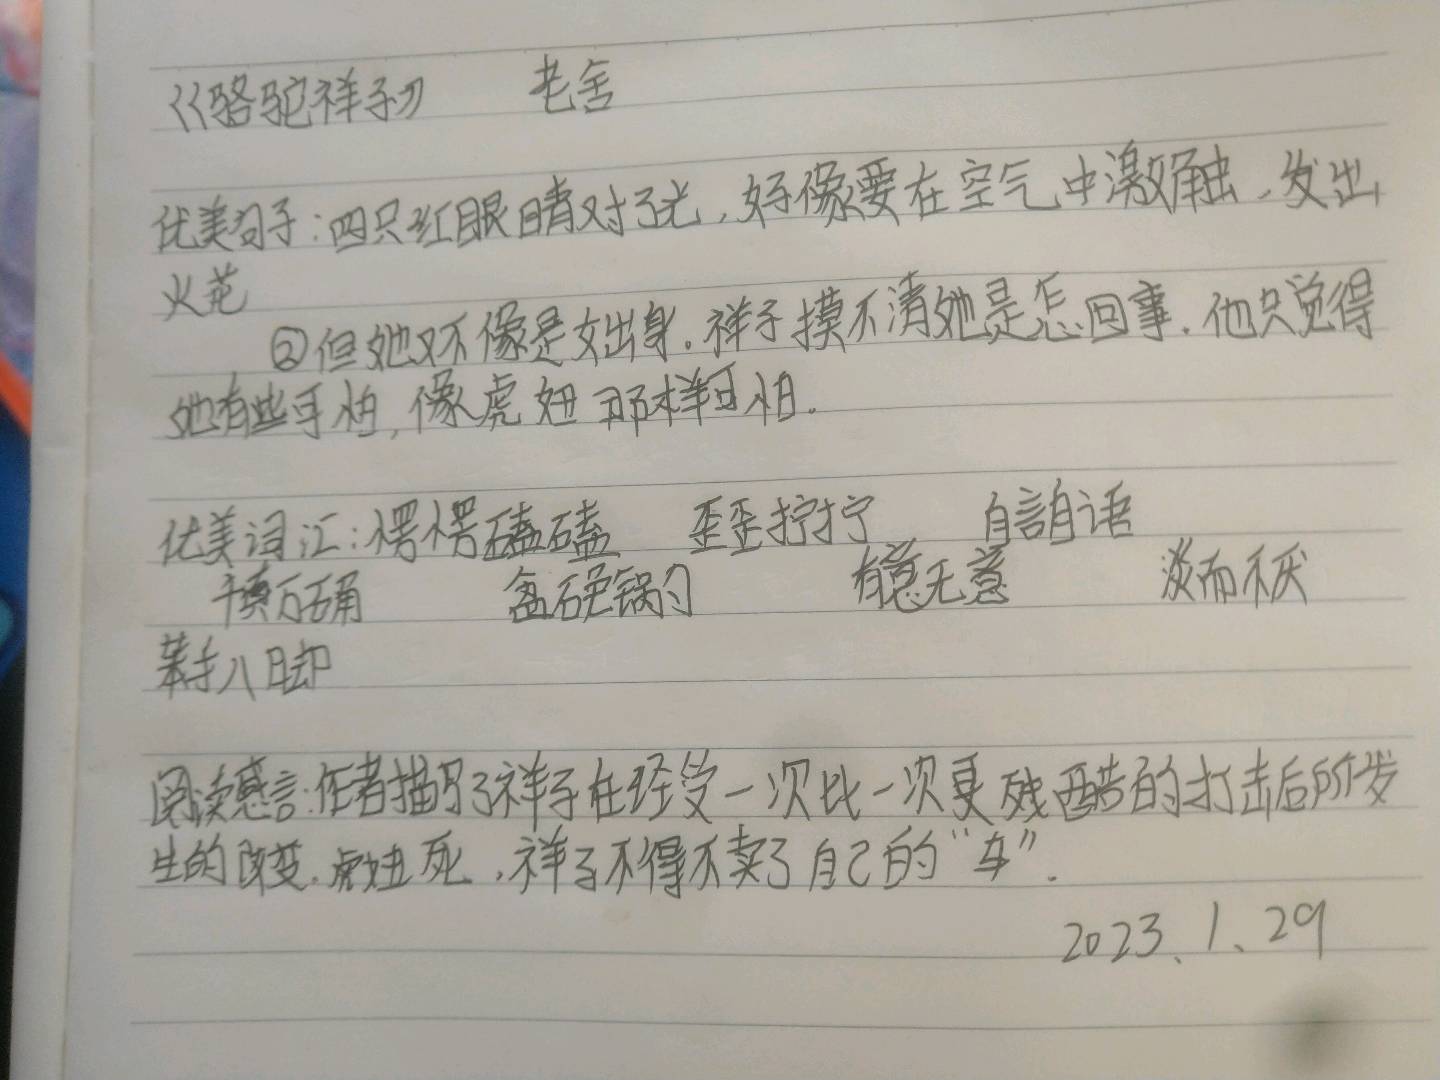 《骆驼祥子》 老舍
优美句子:四只红眼睛对了光,好像要在空气中激触、发出
火花
②但她又不像是女出身.祥子摸不清她是怎回事.他只觉得
她有些可怕,像虎妞那样可怕.
优美词汇:愣愣磕磕 歪歪拧拧 自言自语
千真万确 盆碗锅勺 有意无意 淡而不厌
笨手八脚
阅读感言:作者描写了祥子在经受一次比一次更残酷的打击后所发
生的改变.虎妞死,祥子不得不卖了自己的“车”.
2023、1、29